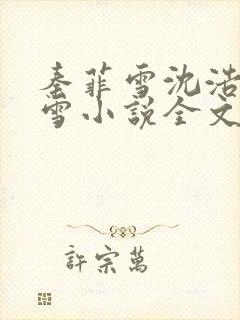 秦菲雪沈浩
雪小說全文
許宗萬